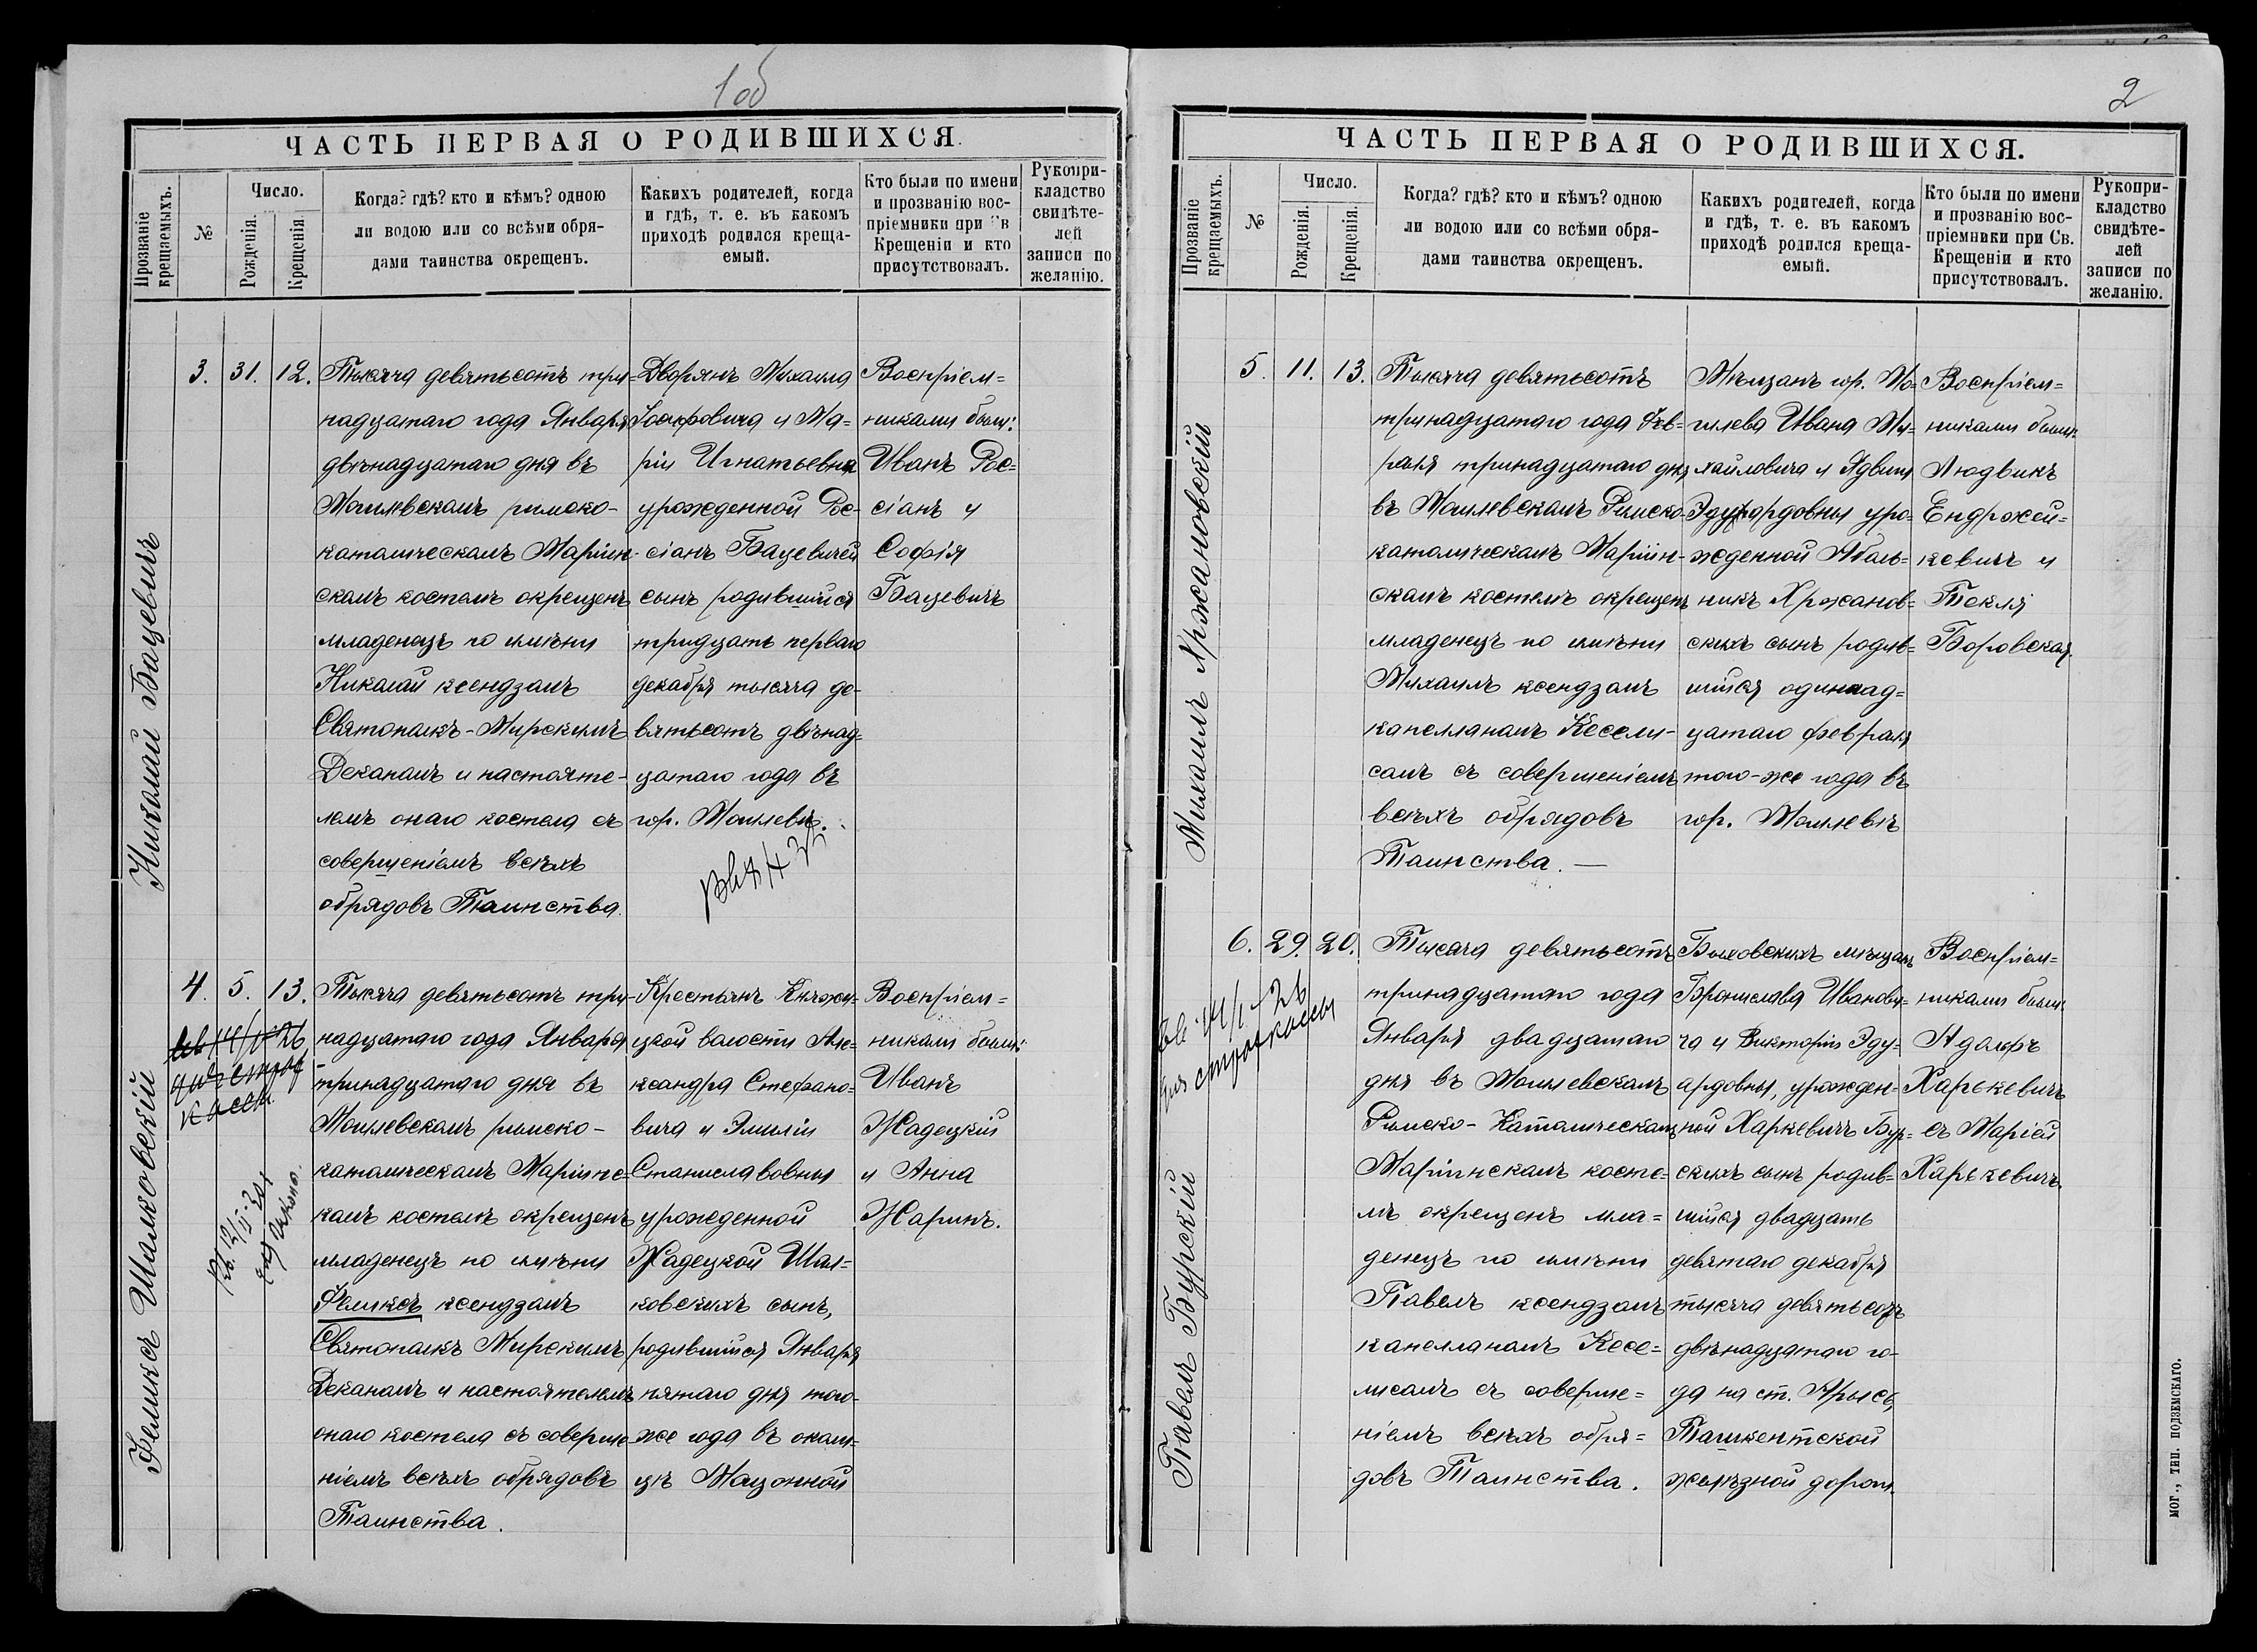 1об
ЧАСТЬ ПЕРВАЯ О РОДИВШИХСЯ.
Прозваніе крещаемыхъ.
№
Число.
Рожденія.
Крещенія.
Когда? гдѣ? кто и кѣмъ? одною
ли водою или со всѣми обря-
дами таинства окрещенъ.
Какихъ родителей, когда
и гдѣ, т. е. въ какомъ
приходѣ родился креща-
емый.
Кто были по имени
и прозванію вос-
пріемники при в
Крещеніи и кто
присутствовалъ.
Рукопри-
кладство
свидѣте-
лей
записи по
желанію.
Николай Бацевичъ
3.
31.
12.
Тысяча девятьсотъ три-
надцатаго года Января
двѣнадцатаго дня въ
Могилевскомъ римско-
католическомъ Маріин-
скомъ костелѣ окрещенъ
младенецъ по имени
Николай ксендзомъ
Святополкъ-Мирскимъ
Деканомъ и настояте-
лемъ онаго костела съ
совершеніемъ всѣхъ
обрядовъ Таинства.
Дворянъ Михаила
Іосифовича и Ма-
ріи Игнатьевны
урожденной Рос-
сіанъ Бацевичей
сынъ родившійся
тридцать перваго
декабря тысяча де-
вятьсотъ двѣнад-
цатаго года въ
гор. Могилевѣ.
Воспріем-
никами были:
Иванъ Рос-
сіанъ и
Софія
Бацевичъ
Феликсъ Шалковскій
4.
5.
13.
касс
Тысяча девятьсотъ три-
надцатаго года Января
тринадцатаго дня въ
Могилевскомъ римско-
католическомъ Маріинс-
комъ костелѣ окрещенъ
младенецъ по имени
Феликсъ ксендзомъ
Святополкъ Мирскимъ
Деканомъ и настоятелемъ
онаго костела съ соверше-
ніемъ всѣхъ обрядовъ
Таинства.
Крестьянъ Княжи-
цкой волости Але-
ксандра Стефано-
вича и Эмиліи
Станиславовны
урожденной
Жадецкой Шал-
ковскихъ сынъ,
родившійся Января
пятаго дня того-
же года въ околи-
цѣ Мацонной
Воспріем-
никами были:
Иванъ
Жадецкій
и Анна
Жаринъ.
2
ЧАСТЬ ПЕРВАЯ О РОДИВШИХСЯ.
Прозваніе крещаемыхъ.
№
Число.
Рожденія.
Крещенія.
Когда? гдѣ? кто и кѣмъ? одною
ли водою или со всѣми обря-
дами таинства окрещенъ.
Какихъ родителей, когда
и гдѣ, т. е. въ какомъ
приходѣ родился креща-
емый.
Кто были по имени
и прозванію вос-
пріемники при Св.
Крещеніи и кто
присутствовалъ.
Рукопри-
кладство
свидѣте-
лей
записи по
желанію.
Михаилъ Хржановскій
5.
11.
13.
Тысяча девятьсотъ
тринадцатаго года Фев-
раля тринадцатаго дня
въ Могилевскомъ Римско-
католическомъ Маріин-
скомъ костелѣ окрещенъ
младенецъ по имени
Михаилъ ксендзомъ
капелланомъ Кесели-
сомъ съ совершеніемъ
всѣхъ обрядовъ
Таинства.—
Мѣщанъ гор. Мо-
гилева Ивана Ми-
хайловича и Ядвиги
Эдуардовны уро-
жденной
никъ Хржанов-
скихъ сынъ родив-
шійся одиннад-
цатаго февраля
того-же года въ
гор. Могилевѣ
Воспріем-
никами были:
Людвикъ
Ендржей-
кевичъ и
Текля
Боровская.
Павелъ Бурскій
6.
29.
20.
страхкассы
Тысяча девятьсотъ
тринадцатаго года
Января двадцатаго
дня въ Могилевскомъ
Римско-Католическомъ
Маріинскомъ косте-
лѣ окрещенъ мла-
денецъ по имени
Павелъ ксендзомъ
капелланомъ Кесе-
лисомъ съ соверше-
ніемъ всѣхъ обря-
довъ Таинства.
Быховскихъ мѣщанъ
Бронислава Иванови-
ча и Викторіи Эду-
ардовны, урожден-
ной Харкевичъ Бур-
скихъ сынъ родив-
шійся двадцать
девятаго декабря
тысяча девятьсотъ
двѣнадцатаго го-
да на ст. Арысь,
Ташкентской
желѣзной дороги.
Воспріем-
никами были:
Адольфъ
Харькевичъ
съ Маріей
Харькевичъ.
МОГ., ТИП. ПОДЗЕМСКАГО.